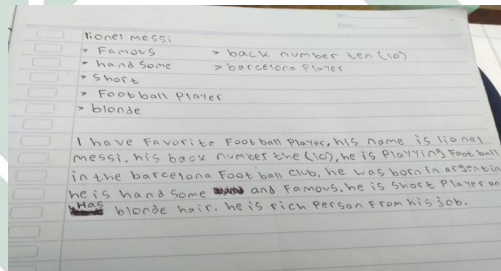 lionel messi
> Famous > back number ten (10)
> hand some > barcelona Player
> Short
> Football Player
> blonde
I have Favorite Foot ball Player, his name is lionel
messi. his back number the (10), he is Playying Foot ball
in the barcelona Foot ball club. he was born in argentin
he is hand some and Famous. he is short Player an
Has blonde hair. he is rich Person From his job.